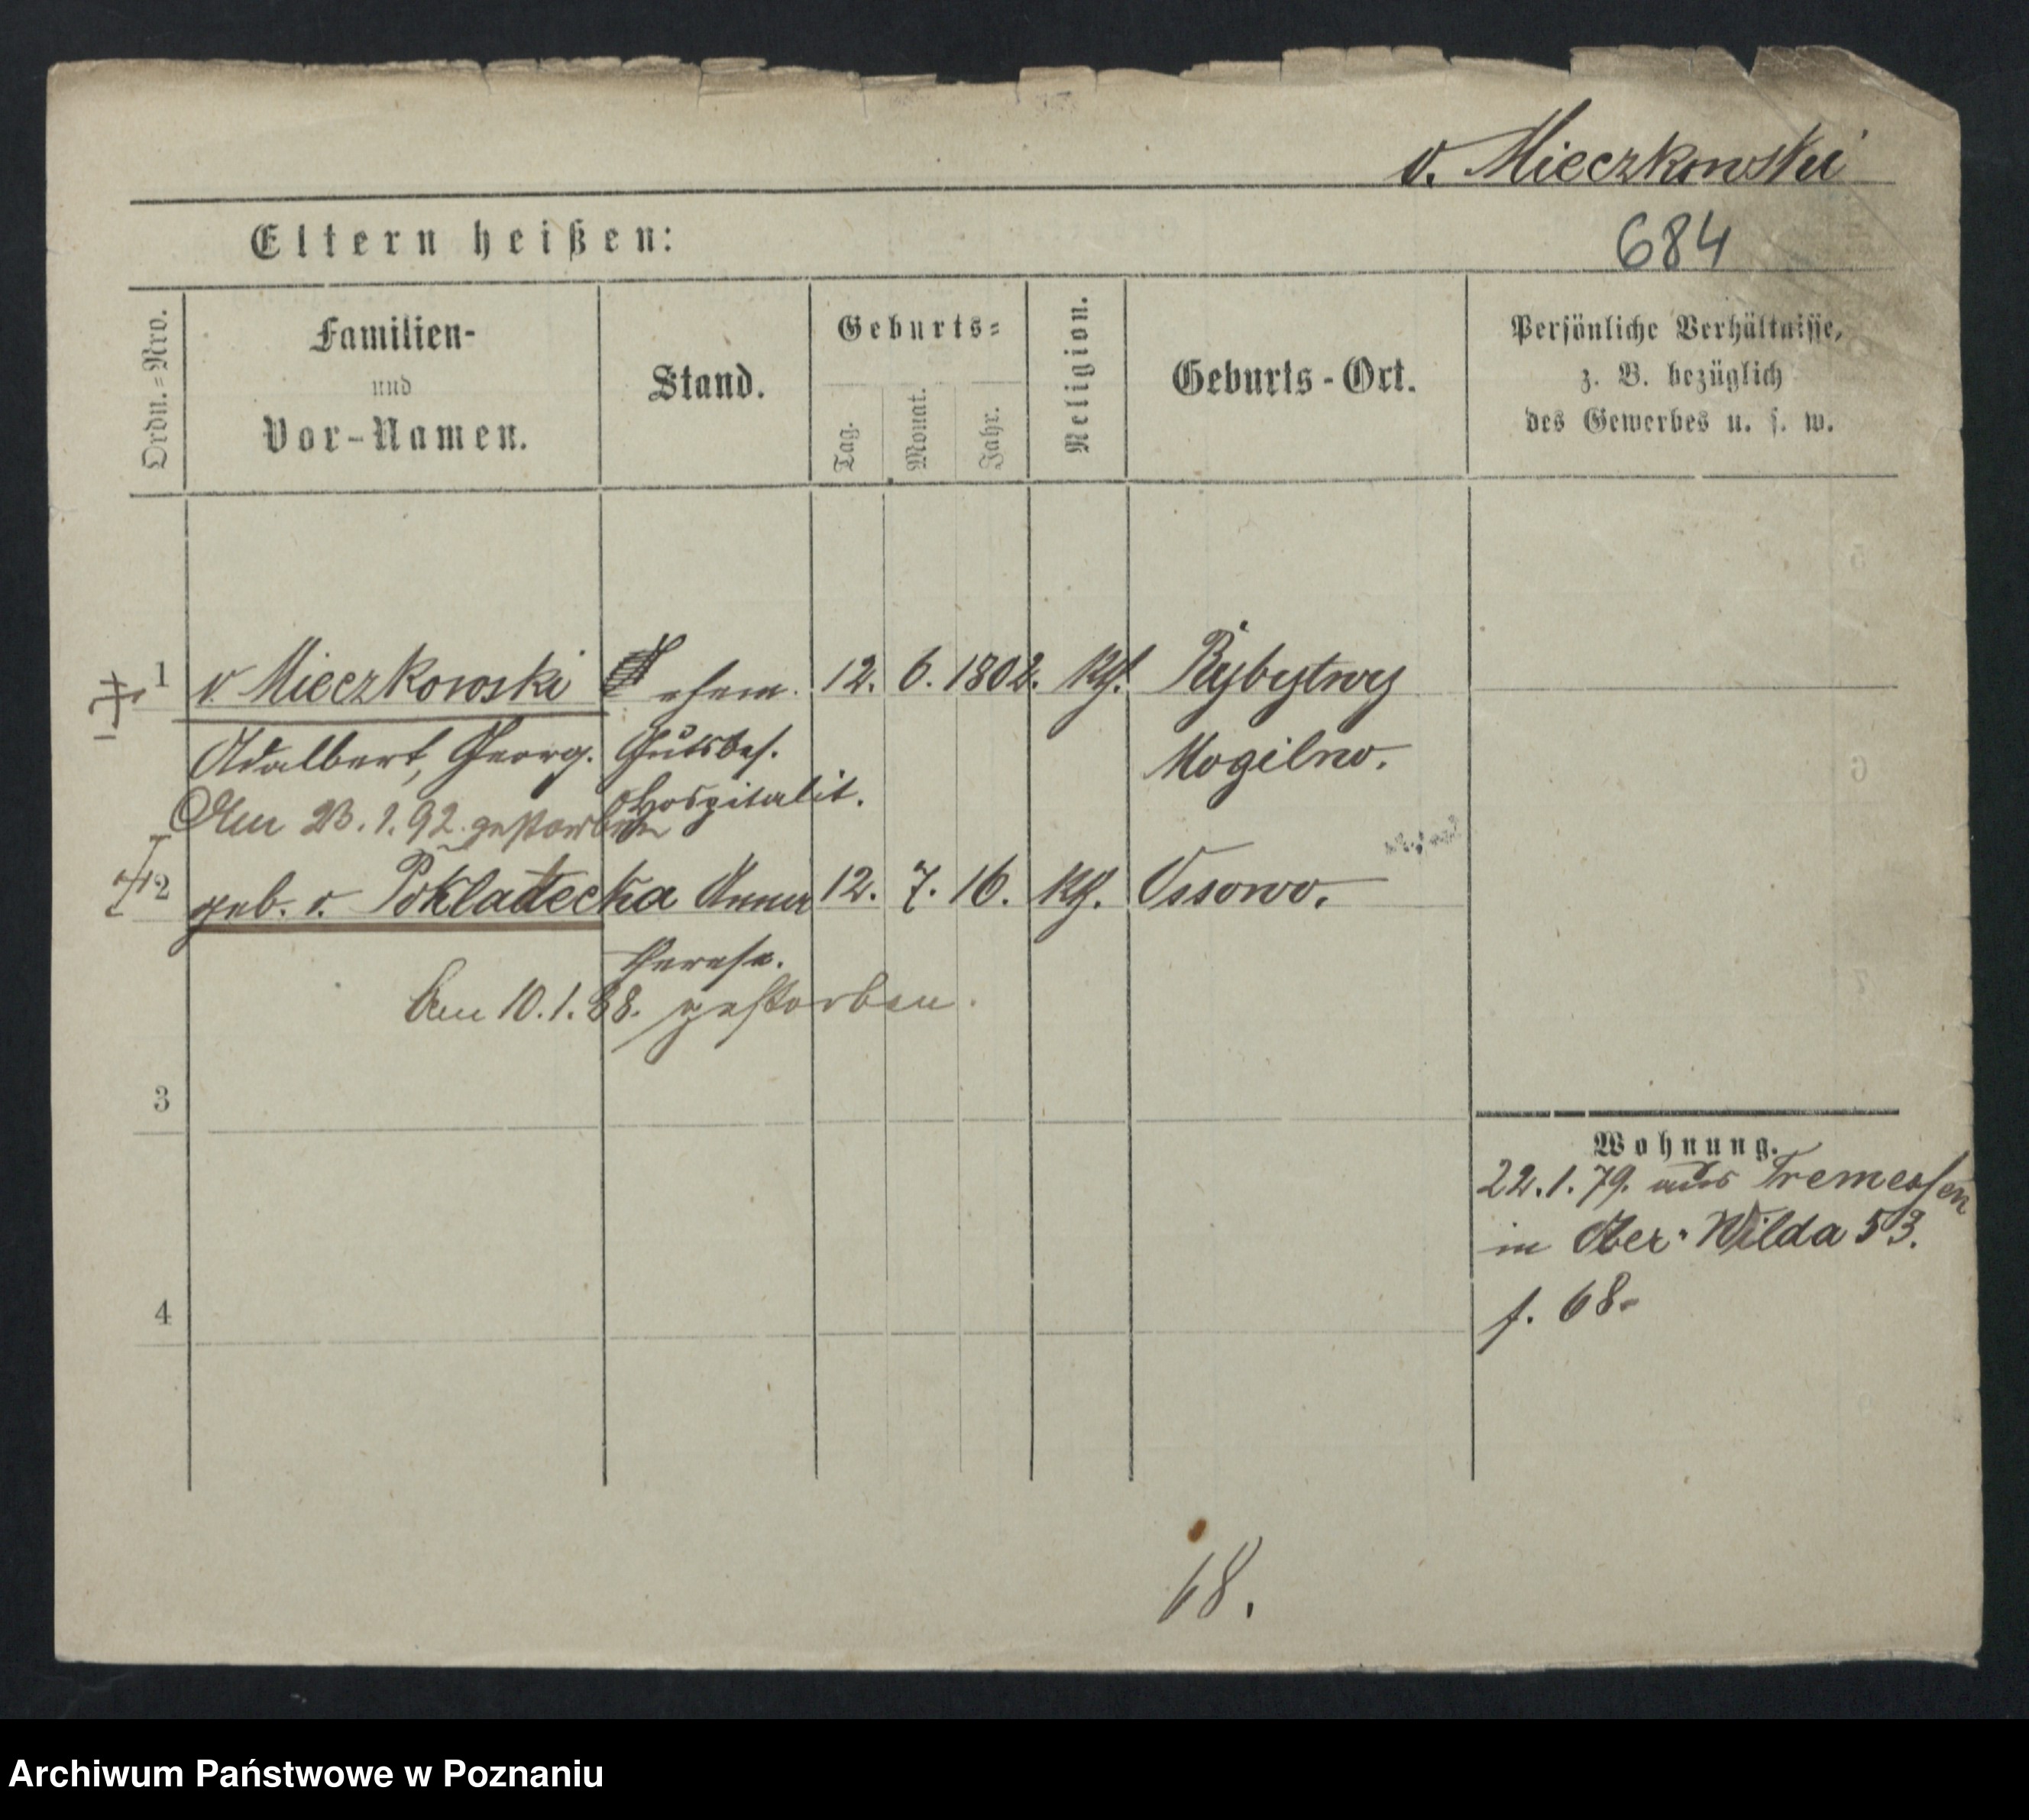 v. Mieczkowski
Eltern heißen:
684
Ordn.=Nro.
Familien-
und
Vor-Namen.
Stand.
Geburts=
Tag.
Monat.
Jahr.
Religion.
Geburts-Ort.
Persönliche Verhältnisse,
z. B. bezüglich
des Gewerbes u. s. w.
1 v. Mieczkowski ehem. 12. 6. 1802. kth. Rybytwy
Adalbert, Georg. Gutsbes. Mogilno.
Hospitalit.
Am 23. 1. 92. gestorben
2 geb. v. Pokladecka Anna 12. 7. 16. kth. Ossowo.
Therese.
Am 10. 1. 88. gestorben.
3
4
Wohnung.
22. 1. 79. aus Tremessen
in Ober-Wilda 53.
f. 68
68.
Archiwum Państwowe w Poznaniu